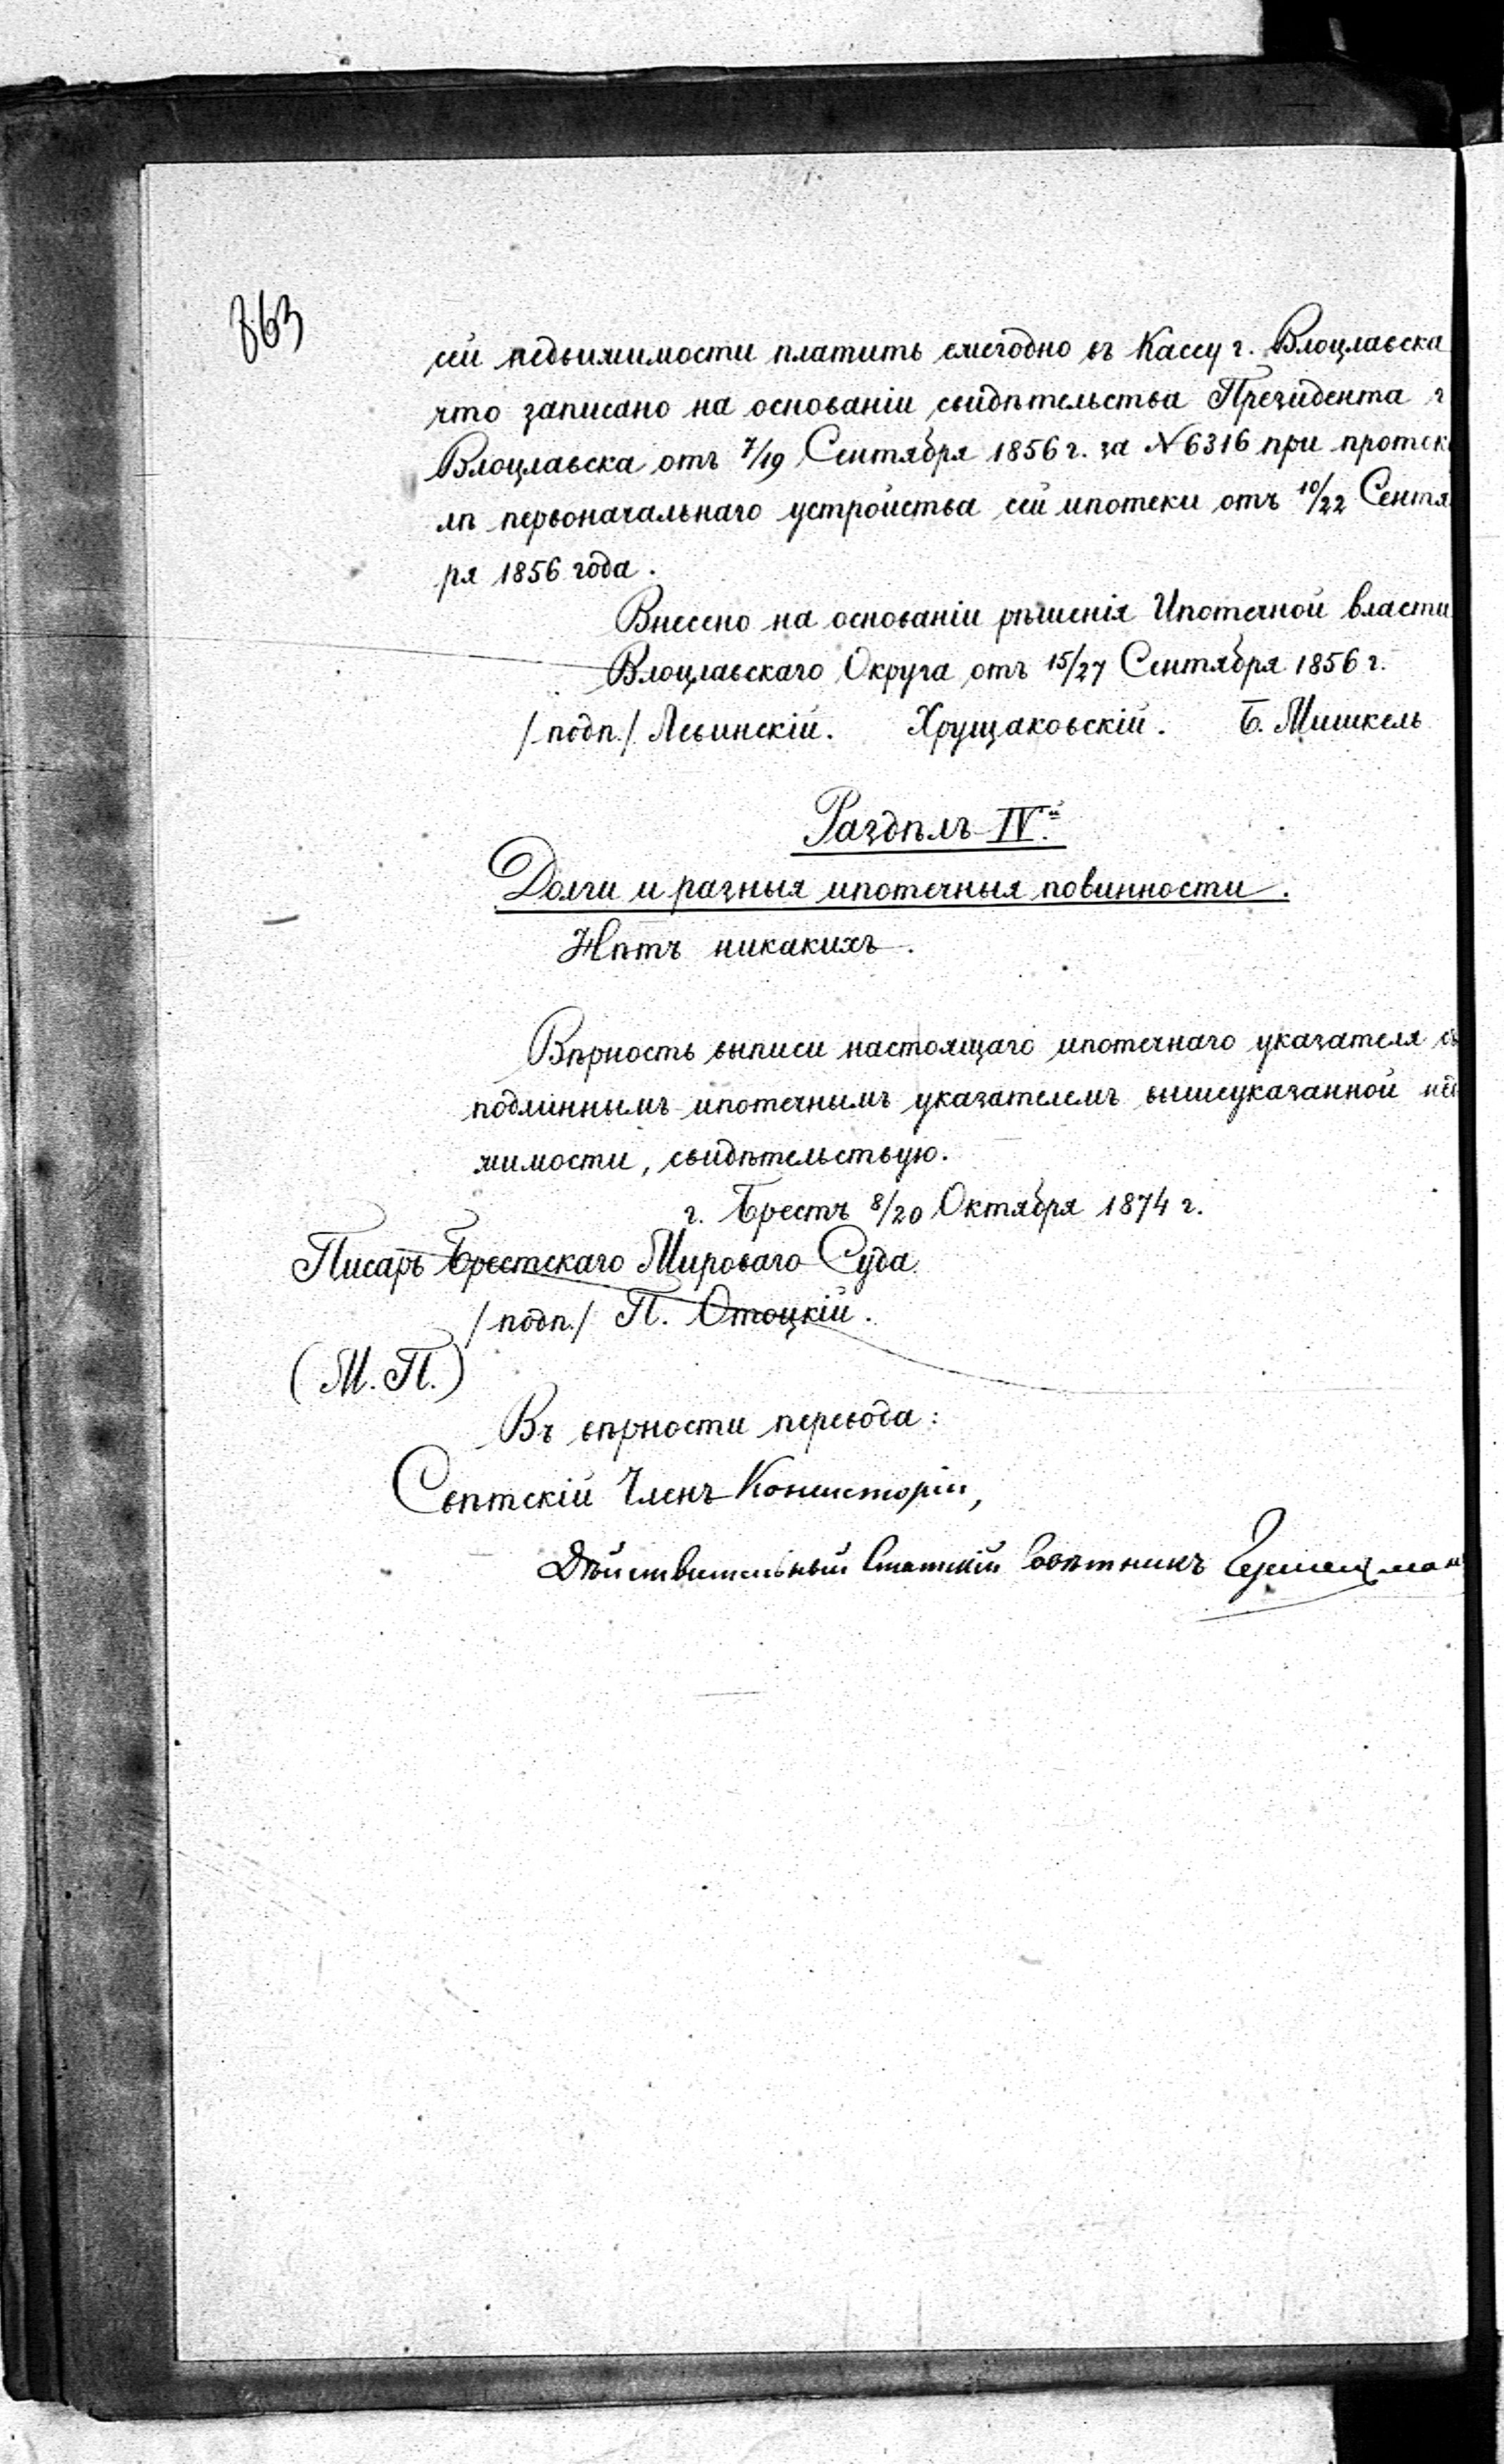 863
сей недвижимости платить ежегодно въ Кассу г. Влоцлавска
что записано на основаніи свидѣтельства Президента г
Влоцлавска отъ 7/19 Сентября 1856 г. за № 6316 при протоко
лѣ первоначальнаго устройства сей ипотеки отъ 10/22 Сентя
ря 1856 года.
Внесено на основаніи рѣшенія Ипотечной власти
Влоцлавскаго Округа отъ 15/27 Сентября 1856 г.
/подп./ Левинскій. Хрущаковскій. Б. Мишкель
Раздѣлъ IVй.
Долги и разныя ипотечныя повинности.
Нѣтъ никакихъ.
Вѣрность выписи настоящаго ипотечнаго указателя съ
подлиннымъ ипотечнымъ указателемъ вышеуказанной нед
жимости, свидѣтельствую.
г. Брестъ 8/20 Октября 1874 г.
Писарь Брестскаго Мироваго Суда
/подп./ П. Отоцкій.
(М.П.)
Въ вѣрности перевода:
Свѣтскій Членъ Консисторіи,
Дѣйствительный Статскій Совѣтникъ